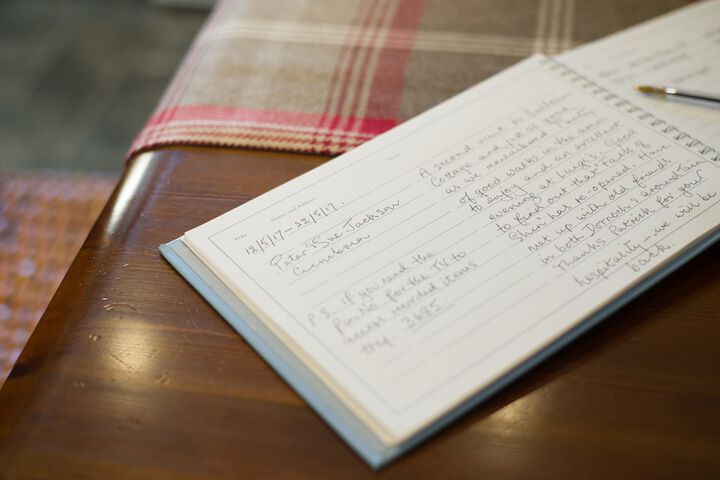 Date
Name and Address
Notes
12/5/17 – 22/5/17.
Peter & Sue Jackson
Cumbria
P.S. if you need the
Pin No. for the TV to
access recorded items
try 3695
A second visit to
Cottage and just as good
as we remembered. Plenty
of good walks in the area
to enjoy and an excellent
evening at Luigi's. Good
to find out that Falls of
Shin has re-opened. Have
met up with old friends
in both Dornoch & around Tain
Thanks Patrick for your
hospitality – we will be
back.